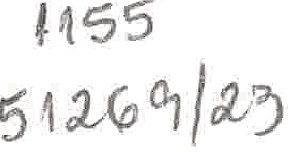 1155
51269/23